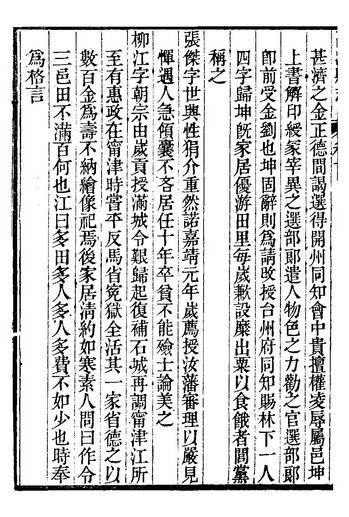 甚濟之金正德間謁選得開州同知會中貴擅權凌辱屬邑坤
上書解印綬冢宰異之選部郎遣人物色之力勸之官選部郎
卽前受金劉也坤固辭則為請改授台州府同知賜林下一人
四字歸坤旣家居優游田里每歲歉設糜出粟以食餓者閭黨
稱之
張傑字世與性狷介重然諾嘉靖元年歲薦授汝藩審理以嚴見
憚遇人急傾囊不吝居任十年卒貧不能殮士論美之
柳江字朝宗由歲貢授滿城令艱歸起復補石城再調甯津江所
至有惠政在甯津時嘗平反馬省冤獄全活其一家省德之以
數百金為壽不納繪像祀焉後家居淸約如寒素人問曰作令
三邑田不滿百何也江曰多田多人多人多費不如少也時奉
為格言